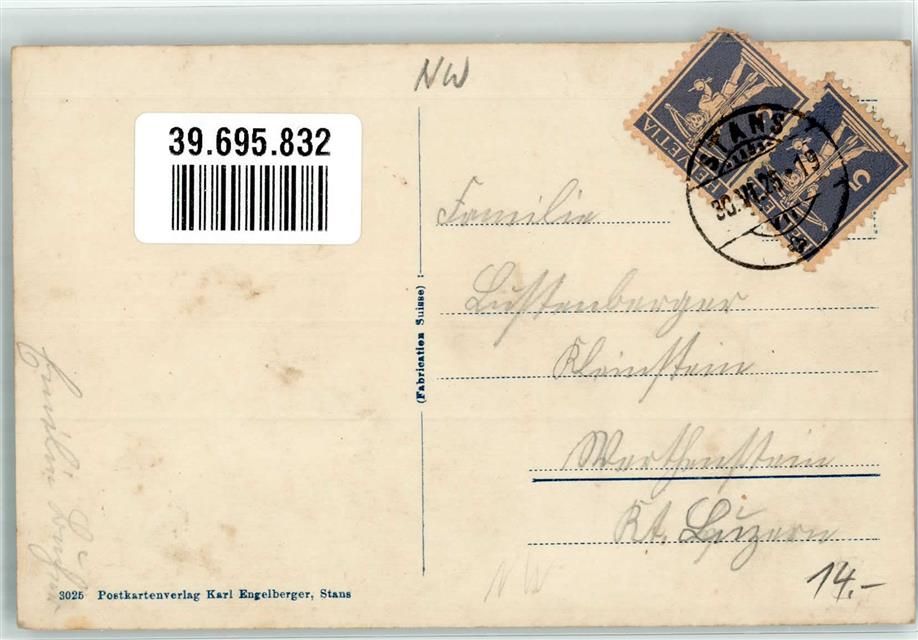 NW
39.695.832
HELVETIA 5
HELVETIA 5
STANS
30.VII.25-19
Familie
Lustenberger
Kleinstein
Werthenstein
Kt. Luzern
(Fabrication Suisse)
Familie
NW
14.-
3025 Postkartenverlag Karl Engelberger, Stans